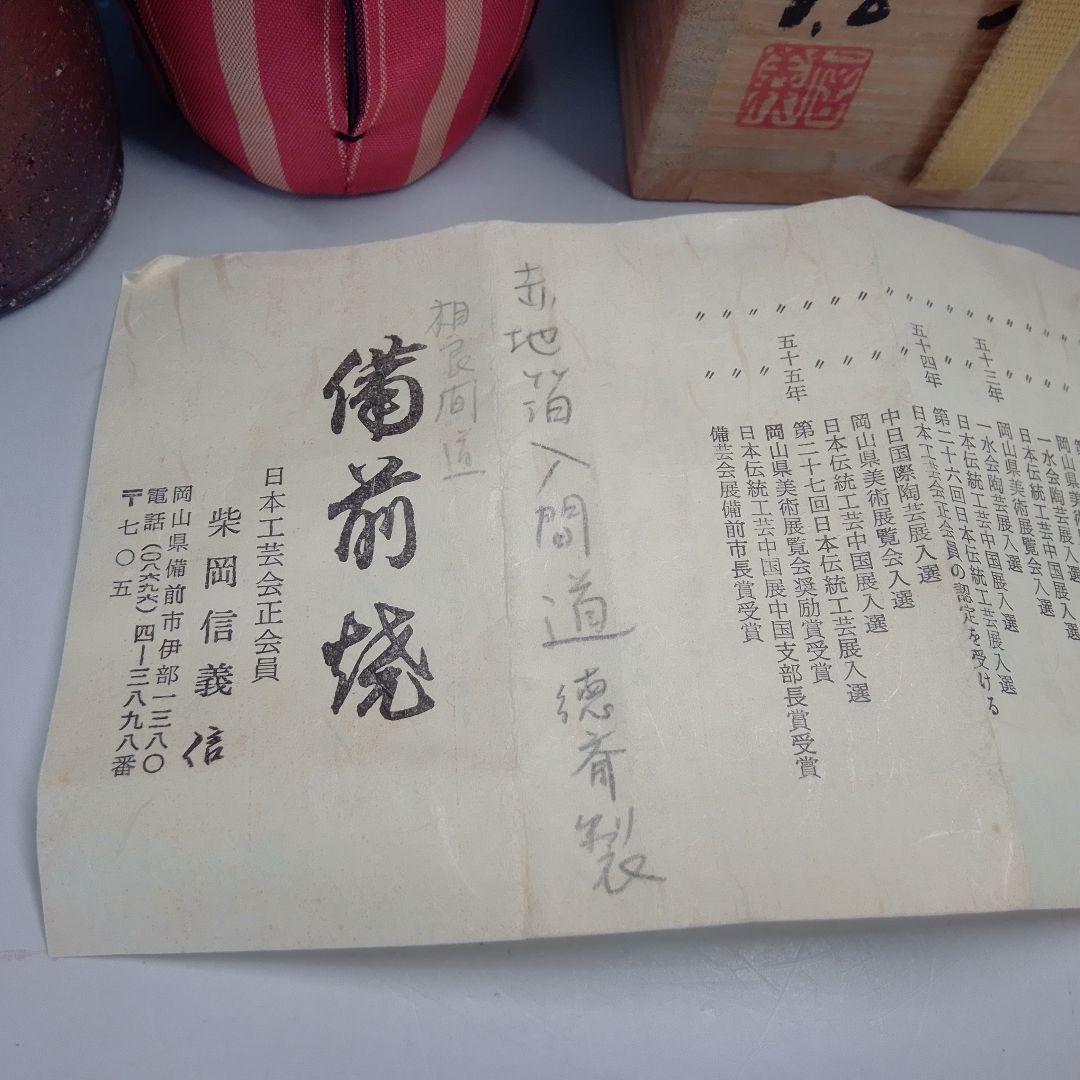 〃
五十三年
〃
五十四年
〃
五十五年
〃
岡山県美術展覧会入選
一水会陶芸展入選
日本伝統工芸中国展入選
岡山県美術展覧会入選
一水会陶芸展入選
日本伝統工芸中国展入選
第二十六回日本伝統工芸展入選
日本工芸会正会員の認定を受ける
中日国際陶芸展入選
岡山県美術展覧会入選
日本伝統工芸中国展入選
第二十七回日本伝統工芸展入選
岡山県美術展覧会奨励賞受賞
日本伝統工芸中国展中国支部長賞受賞
備芸会展備前市長賞受賞
赤地箔入間道徳斎製
相良間道
備前焼
日本工芸会正会員
柴岡信義 信
岡山県備前市伊部一三八〇
電話(〇八六九六)四―三八九八番
〒七〇五